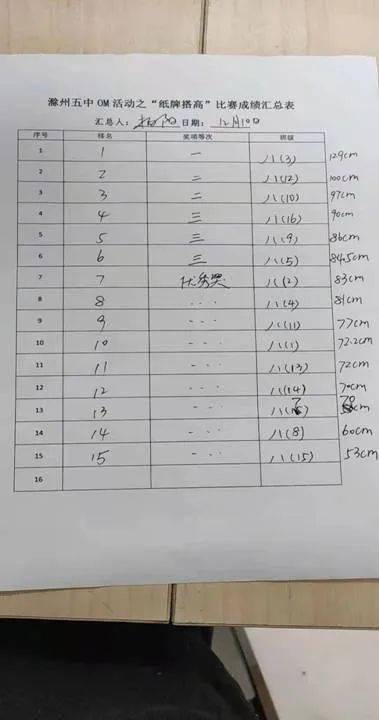 滁州五中 OM 活动之“纸牌搭高”比赛成绩汇总表
汇总人: 杨阳 日期: 12月10日
序号 排名 奖项等次 班级
1 1 一 八(3) 129cm
2 2 二 八(12) 100cm
3 3 二 八(10) 97cm
4 4 三 八(16) 90cm
5 5 三 八(9) 86cm
6 6 三 八(5) 84.5cm
7 7 优秀奖 八(2) 83cm
8 8 ... 八(4) 81cm
9 9 --- 八(11) 77cm
10 10 --- 八(1) 72.2cm
11 11 --- 八(13) 72cm
12 12 --- 八(14) 70cm
13 13 --- 八( 7 70 cm
14 14 --- 八(8) 60cm
15 15 --- 八(15) 53cm
16